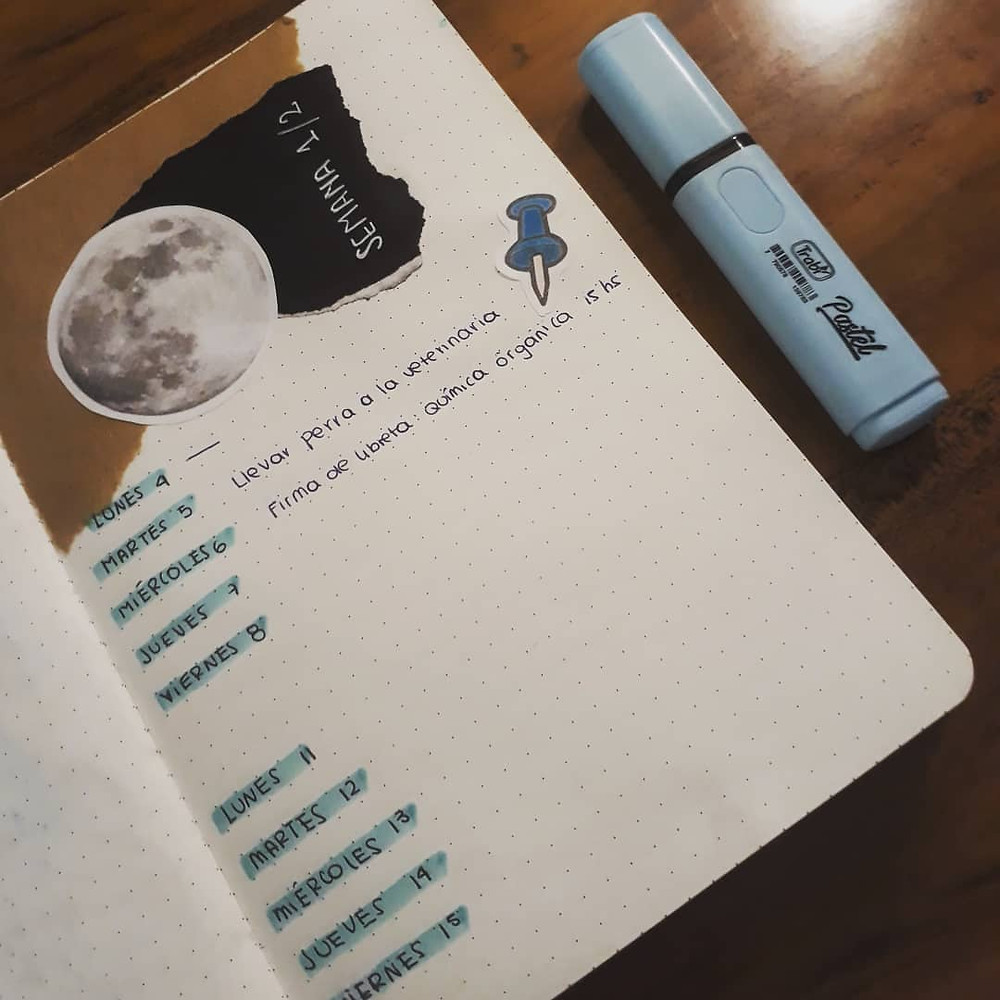 SEMANA 1/2
LUNES 4 —
MARTES 5 Llevar perra a la veterinaria
MIÉRCOLES 6 Firma de libreta: Química orgánica 15 hs
JUEVES 7
VIERNES 8
LUNES 11
MARTES 12
MIÉRCOLES 13
JUEVES 14
VIERNES 15
Trabi
Pastel